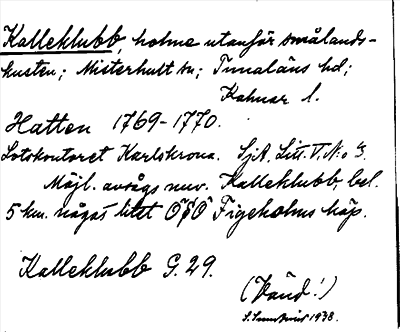 Kalleklubb, holme utanför smålands-
kusten; Misterhult sn; Tunaläns hd;
Kalmar l.
Hatten 1769-1770.
Lotskontoret Karlskrona. SjA, Litt. V, N:o 3.
Möjl. avsågs nuv. Kalleklubb, bel.
5 km. något litet OSO Figeholms köp.
Kalleklubb G. 29.
(Vänd!)
1938.